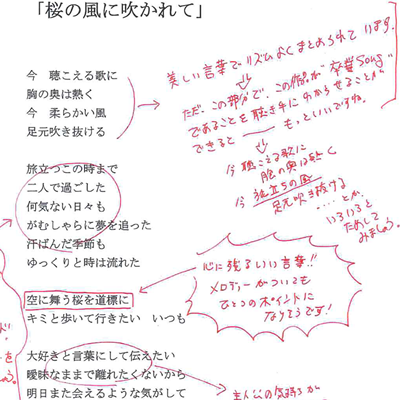 「桜の風に吹かれて」
今　聴こえる歌に
胸の奥は熱く
今　柔らかい風
足元吹き抜ける
美しい言葉でリズムよくまとめられています。
ただ、この部分で、この作品が"卒業Song"
であることを聴き手にわからせることが
できると もっといいですね。
今 聴こえる歌に
胸の奥は熱く
今 旅立ちの風
足元吹き抜ける
……とか、
いろいろと
ためして
みましょう。
旅立つこの時まで
二人で過ごした
何気ない日々も
がむしゃらに夢を追った
汗ばんだ季節も
ゆっくりと時は流れた
心に残るいい言葉!!
メロディーがついても
ひとつのポイントに
なりそうです!
空に舞う桜を道標に
キミと歩いて行きたい　いつも
大好きと言葉にして伝えたい
曖昧なままで離れたくないから
明日また会えるような気がして
主人公の気持ちが